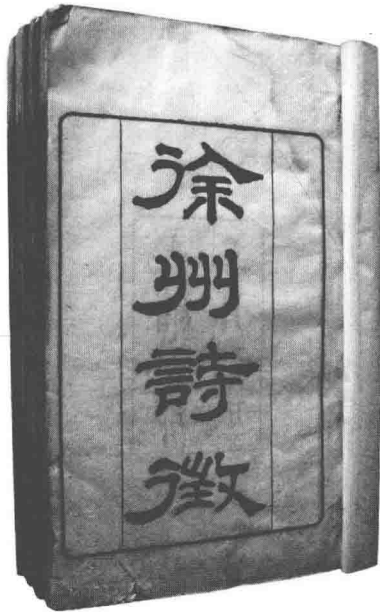 徐州詩徵